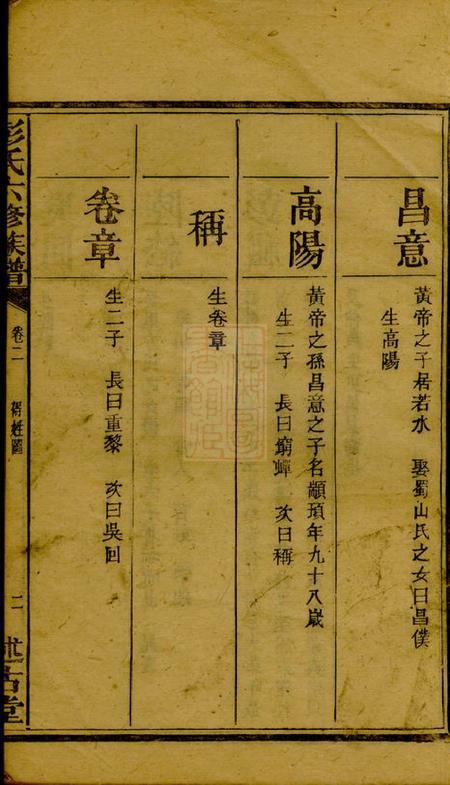 昌意
黃帝之子居若水 娶蜀山氏之女曰昌僕
生高陽
高陽
黃帝之孫昌意之子名顓頊年九十八歲
生二子 長曰窮蟬 次曰稱
稱
生卷章
卷章
生二子 長曰重黎 次曰吳回
彭氏六修族譜
卷二
二
述古堂